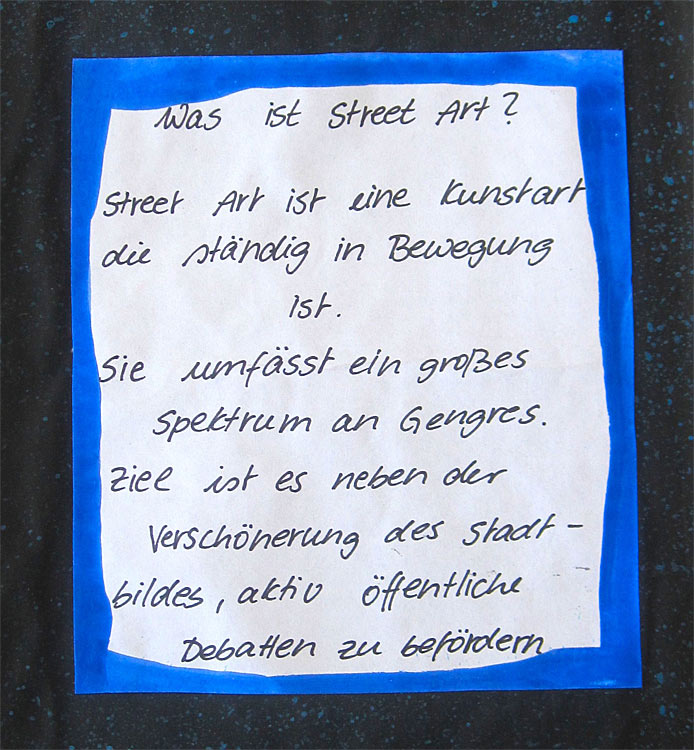 Was ist Street Art?
Street Art ist eine Kunstart
die ständig in Bewegung
ist.
Sie umfässt ein großes
Spektrum an Gengres.
Ziel ist es neben der
Verschönerung des Stadt-
bildes, aktiv öffentliche
Debatten zu befördern